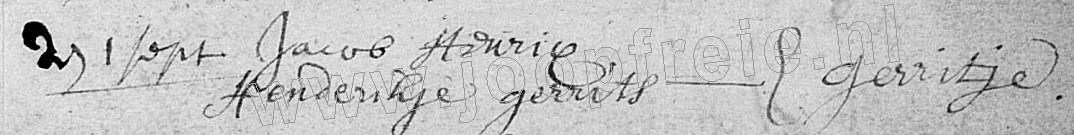 27 1 sept Jacob Henrix
Henderikje gerrits — { gerritje.
www.joopfreie.nl